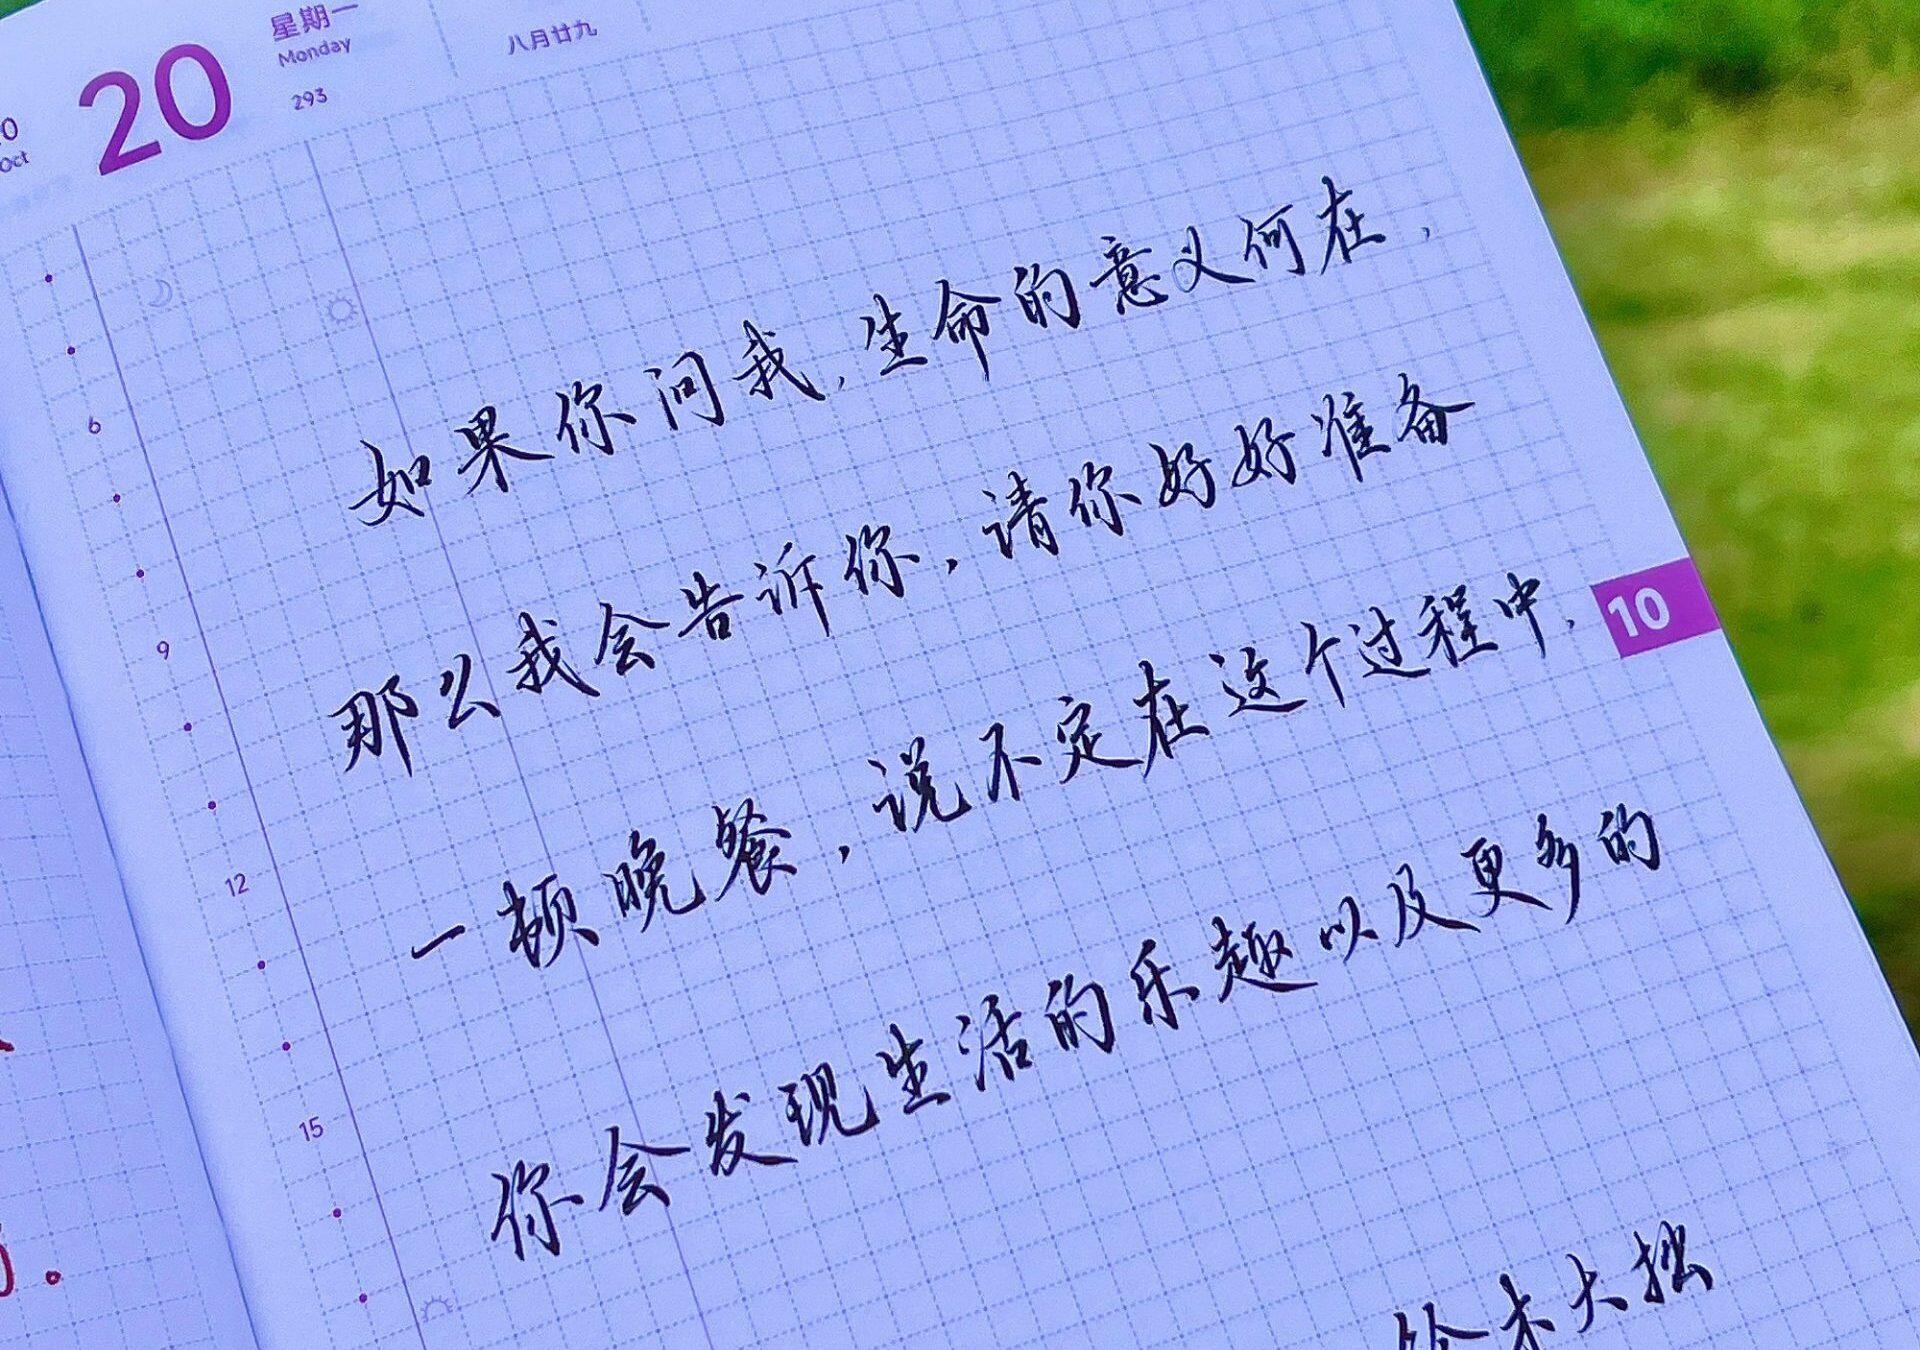 20
星期一
Monday
293
八月廿九
Oct
如果你问我，生命的意义何在，
那么我会告诉你，请你好好准备
一顿晚餐，说不定在这个过程中，
你会发现生活的乐趣以及更多的
铃木大拙
6
9
12
15
10